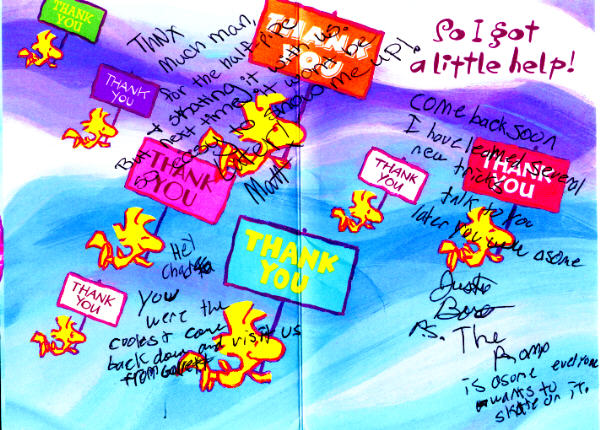 THANK
YOU
THANK
YOU
THANK
YOU
THANK
YOU
THANK
YOU
THANK
YOU
THANK
YOU
THANK
YOU
So I got
a little help!
Thnx
much man,
for the half-pipe
& skating it with us.
But, next time it wont be
so easy to show me up!
Later!
Matt
Hey
You
were the
coolest come
back down and visit us
from Garrett
come back soon
I have learned several
new tricks
talk to you
later you were asome
Justin
P.S. The
Ramp
is asome everyone
wants to
skate on it.